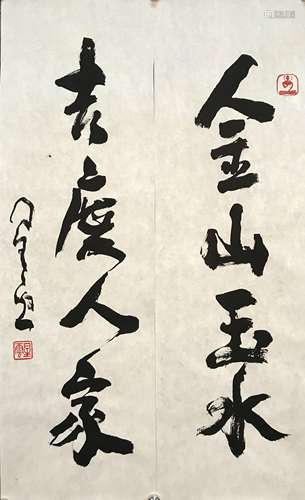 金山玉水
吉庆人家